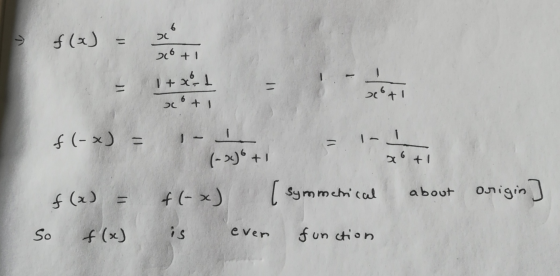 → f(x) = x⁶/(x⁶ + 1)
= (1 + x⁶ - 1)/(x⁶ + 1) = 1 - 1/(x⁶ + 1)
f(-x) = 1 - 1/((-x)⁶ + 1) = 1 - 1/(x⁶ + 1)
f(x) = f(-x) [symmetrical about origin]
So f(x) is even function